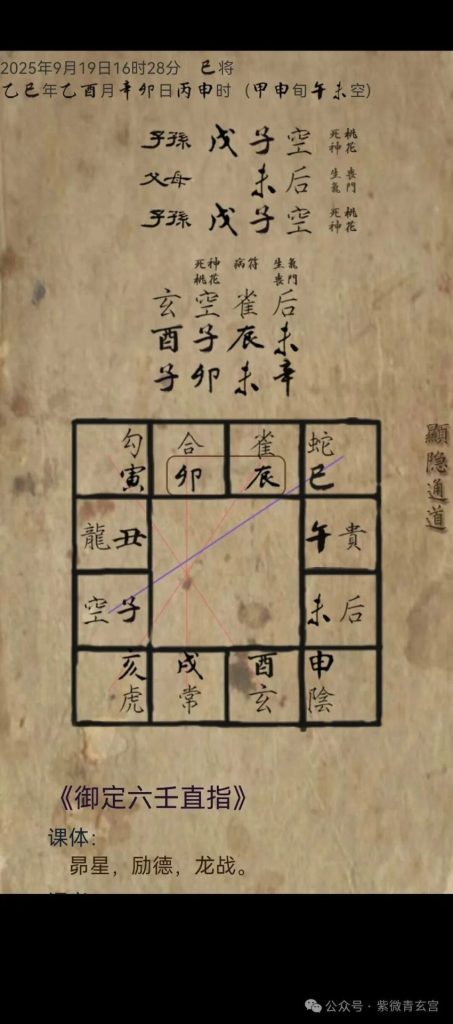 2025年9月19日16时28分 巳将
乙巳年乙酉月辛卯日丙申时（甲申旬午未空）
子孫 戊子空 死神 桃花
父母 未后 生氣 喪門
子孫 戊子空 死神 桃花
死神 桃花 病符 生氣 喪門
玄空雀后
酉子辰未
子卯未辛
勾 合 雀 蛇
寅 卯 辰 巳
龍丑 午貴
空子 未后
亥 戌 酉 申
虎 常 玄 陰
顯隐通道
《御定六壬直指》
课体：
昴星，励德，龙战。
公众号 · 紫微青玄宫